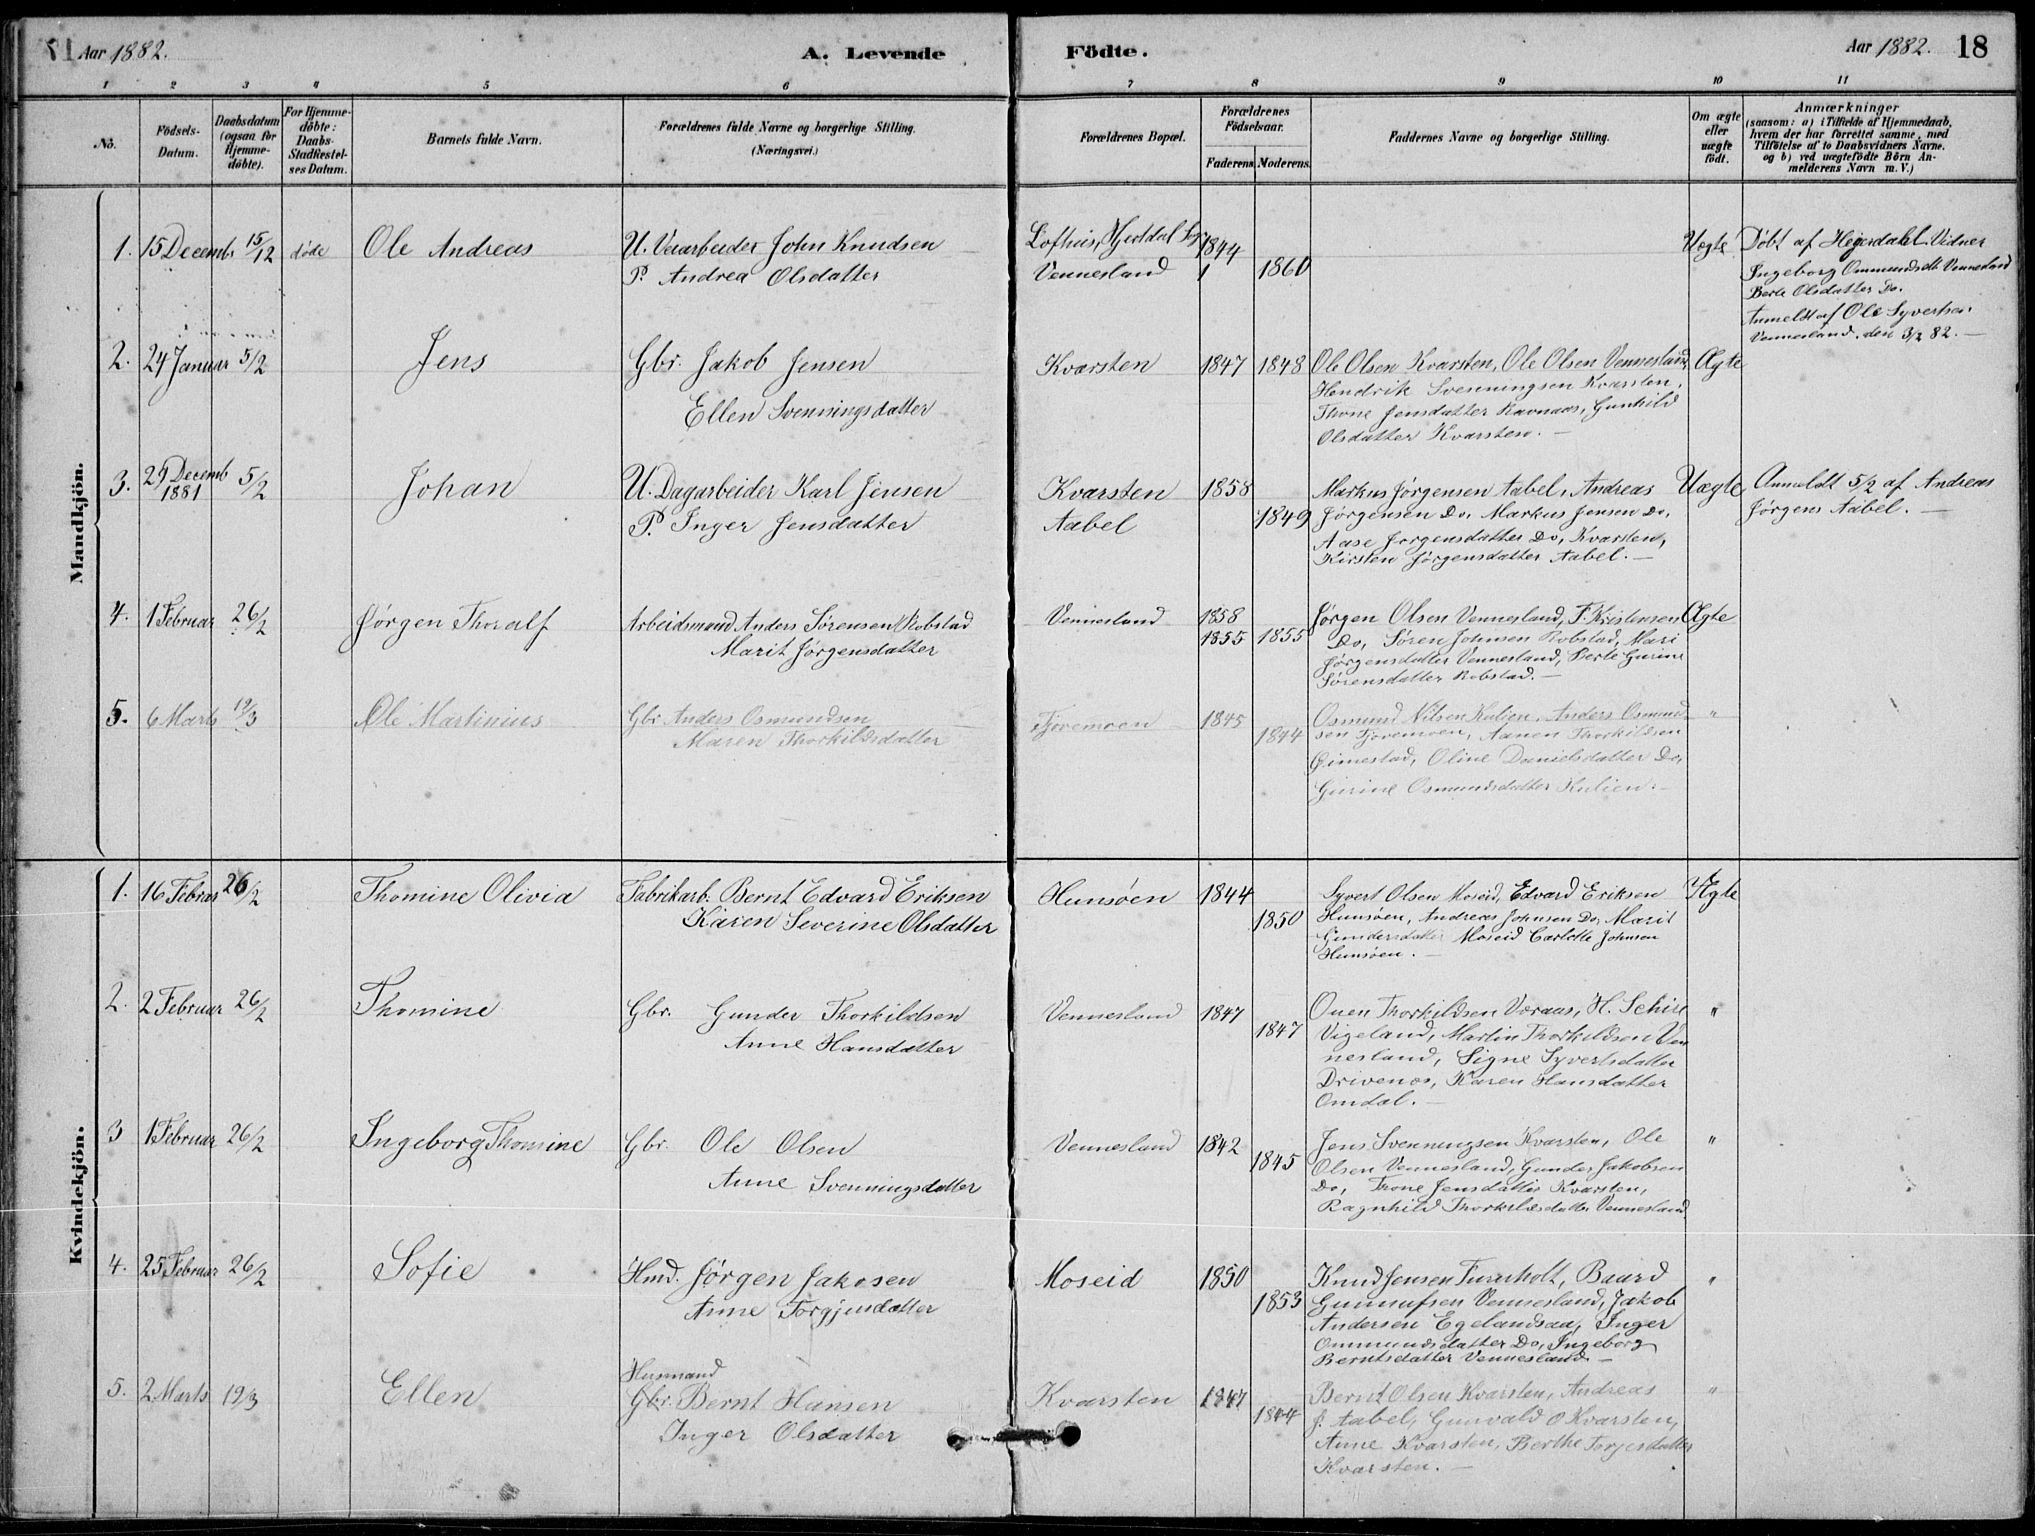 17 Aar 1882. A. Levende Födte. Aar 1882. 18
1 2 3 4 5 6 7 8 9 10 11
No. Födsels-Datum. Daabsdatum (ogsaa for Hjemme-döbte). For Hjemme-döbte: Daabs-Stadfæstel-ses Datum. Barnets fulde Navn. Forældrenes fulde Navne og borgerlige Stilling. (Næringsvei.) Forældrenes Bopæl. Forældrenes Födselsaar. Faderens. Moderens. Faddernes Navne og borgerlige Stilling. Om ægte eller uægte födt. Anmærkninger
(saasom: a) i Tilfælde af Hjemmedaab,
hvem der har forrettet samme, med
Tilföielse af to Daabsvidners Navne.
og b) ved uægtefödte Börn An-
melderens Navn m. V.)
Mandkjön.
1. 15 Decembr 15/12 døde Ole Andreas U. Veiarbeider John Knudsen Lofthus, Hjertdal 1844 Uægte Døbt af Hegerdahl. Vidner
P. Andrea Olsdatter Vennesland 1860 Ingeborg Ommundsdt. Vennesland
Berte Olsdatter Do.
Anmeldt af Ole Syvertsen
Vennesland. den 3/2 82. —
2. 24 Januar 5/2 Jens Gbr. Jakob Jensen Kvarsten 1847 1848 Ole Olsen Kvarsten, Ole Olsen Vennesland, Ægte
Ellen Svenningsdatter Hendrik Svenningsen Kvarsten,
Thone Jensdatter Ravnaas, Gunhild
Olsdatter Kvarsten. —
3. 29 Decemb 1881 5/2 Johan U. Dagarbeider Karl Jensen Kvarsten 1858 Markus Jørgensen Aabel, Andreas Uægte Anmeldt 5/2 af Andreas
P. Inger Jensdatter Aabel 1849 Jørgensen Do, Markus Jensen Do, Jørgens Aabel. —
Aase Jørgensdatter Do, Kvarsten,
Kirsten Jørgensdatter Aabel. —
4. 1 Februar 26/2 Jørgen Thoralf Arbeidsmand Anders Sørensen Robstad Vennesland 1858 Jørgen Olsen Vennesland, T. Kristensen Ægte
Marit Jørgensdatter 1855 1855 Do, Søren Johnsen Robstad, Mari
Jørgensdatter Vennesland, Berte Gurine
Sørensdatter Robstad. —
5. 6 Marts 19/3 Ole Martinius Gbr Anders Osmundsen Fjoremoen 1845 Osmund Nilsen Kulien, Anders Osmund- "
Maren Thorkildsdatter 1844 sen Fjoremoen, Aanen Thorkildsen
Øimestad, Oline Danielsdatter Do,
Gurine Osmundsdatter Kulien. —
Kvindekjön.
1. 16 Februar 26/2 Thomine Olivia Fabrikarb. Bernt Edvard Eriksen Hunsøen 1844 Syvert Olsen Moseid, Edvard Eriksen Ægte
Karen Severine Olsdatter 1850 Hunsøen, Andreas Johnsen Do, Marit
Gundersdatter Moseid Carlotte Johnsen
Hunsøen. —
2. 2 Februar 26/2 Thomine Gbr. Gunder Thorkildsen Vennesland 1847 Onen Thorkildsen Veraas, H. Schise "
Anne Hansdatter 1847 Vigeland, Martin Thorkildsen Ven
nesland, Signe Syvertsdatter
Drivenes, Karen Hansdatter
Omdal. —
3 1 Februar 26/2 Ingeborg Thomine Gbr. Ole Olsen Vennesland 1842 Jens Svenningsen Kvarsten, Ole "
Anne Svenningsdatter 1845 Olsen Vennesland, Gunder Jakobsen
Do, Trone Jensdatter Kvarsten,
Ragnhild Thorkilsdatter Vennesland,
4. 25 Februar 26/2 Sofie Hmd. Jørgen Jakosen Moseid 1850 Knud Jensen Furuholt, Baard "
Anne Torgjusdatter 1853 Gunnufsen Vennesland, Jakob
Andersen Egelandsaa, Inger
Ommundsdatter Do, Ingeborg
Berntsdatter Vennesland —
5. 2 Marts 19/3 Ellen Husmand
Gbr. Bernt Hansen Kvarsten 1847 Bernt Olsen Kvarsten, Andreas "
Inger Olsdatter 1844 J. Aabel, Gunvald O Kvarsten,
Anne Kvarsten, Berthe Torjesdatter
Kvarsten. —